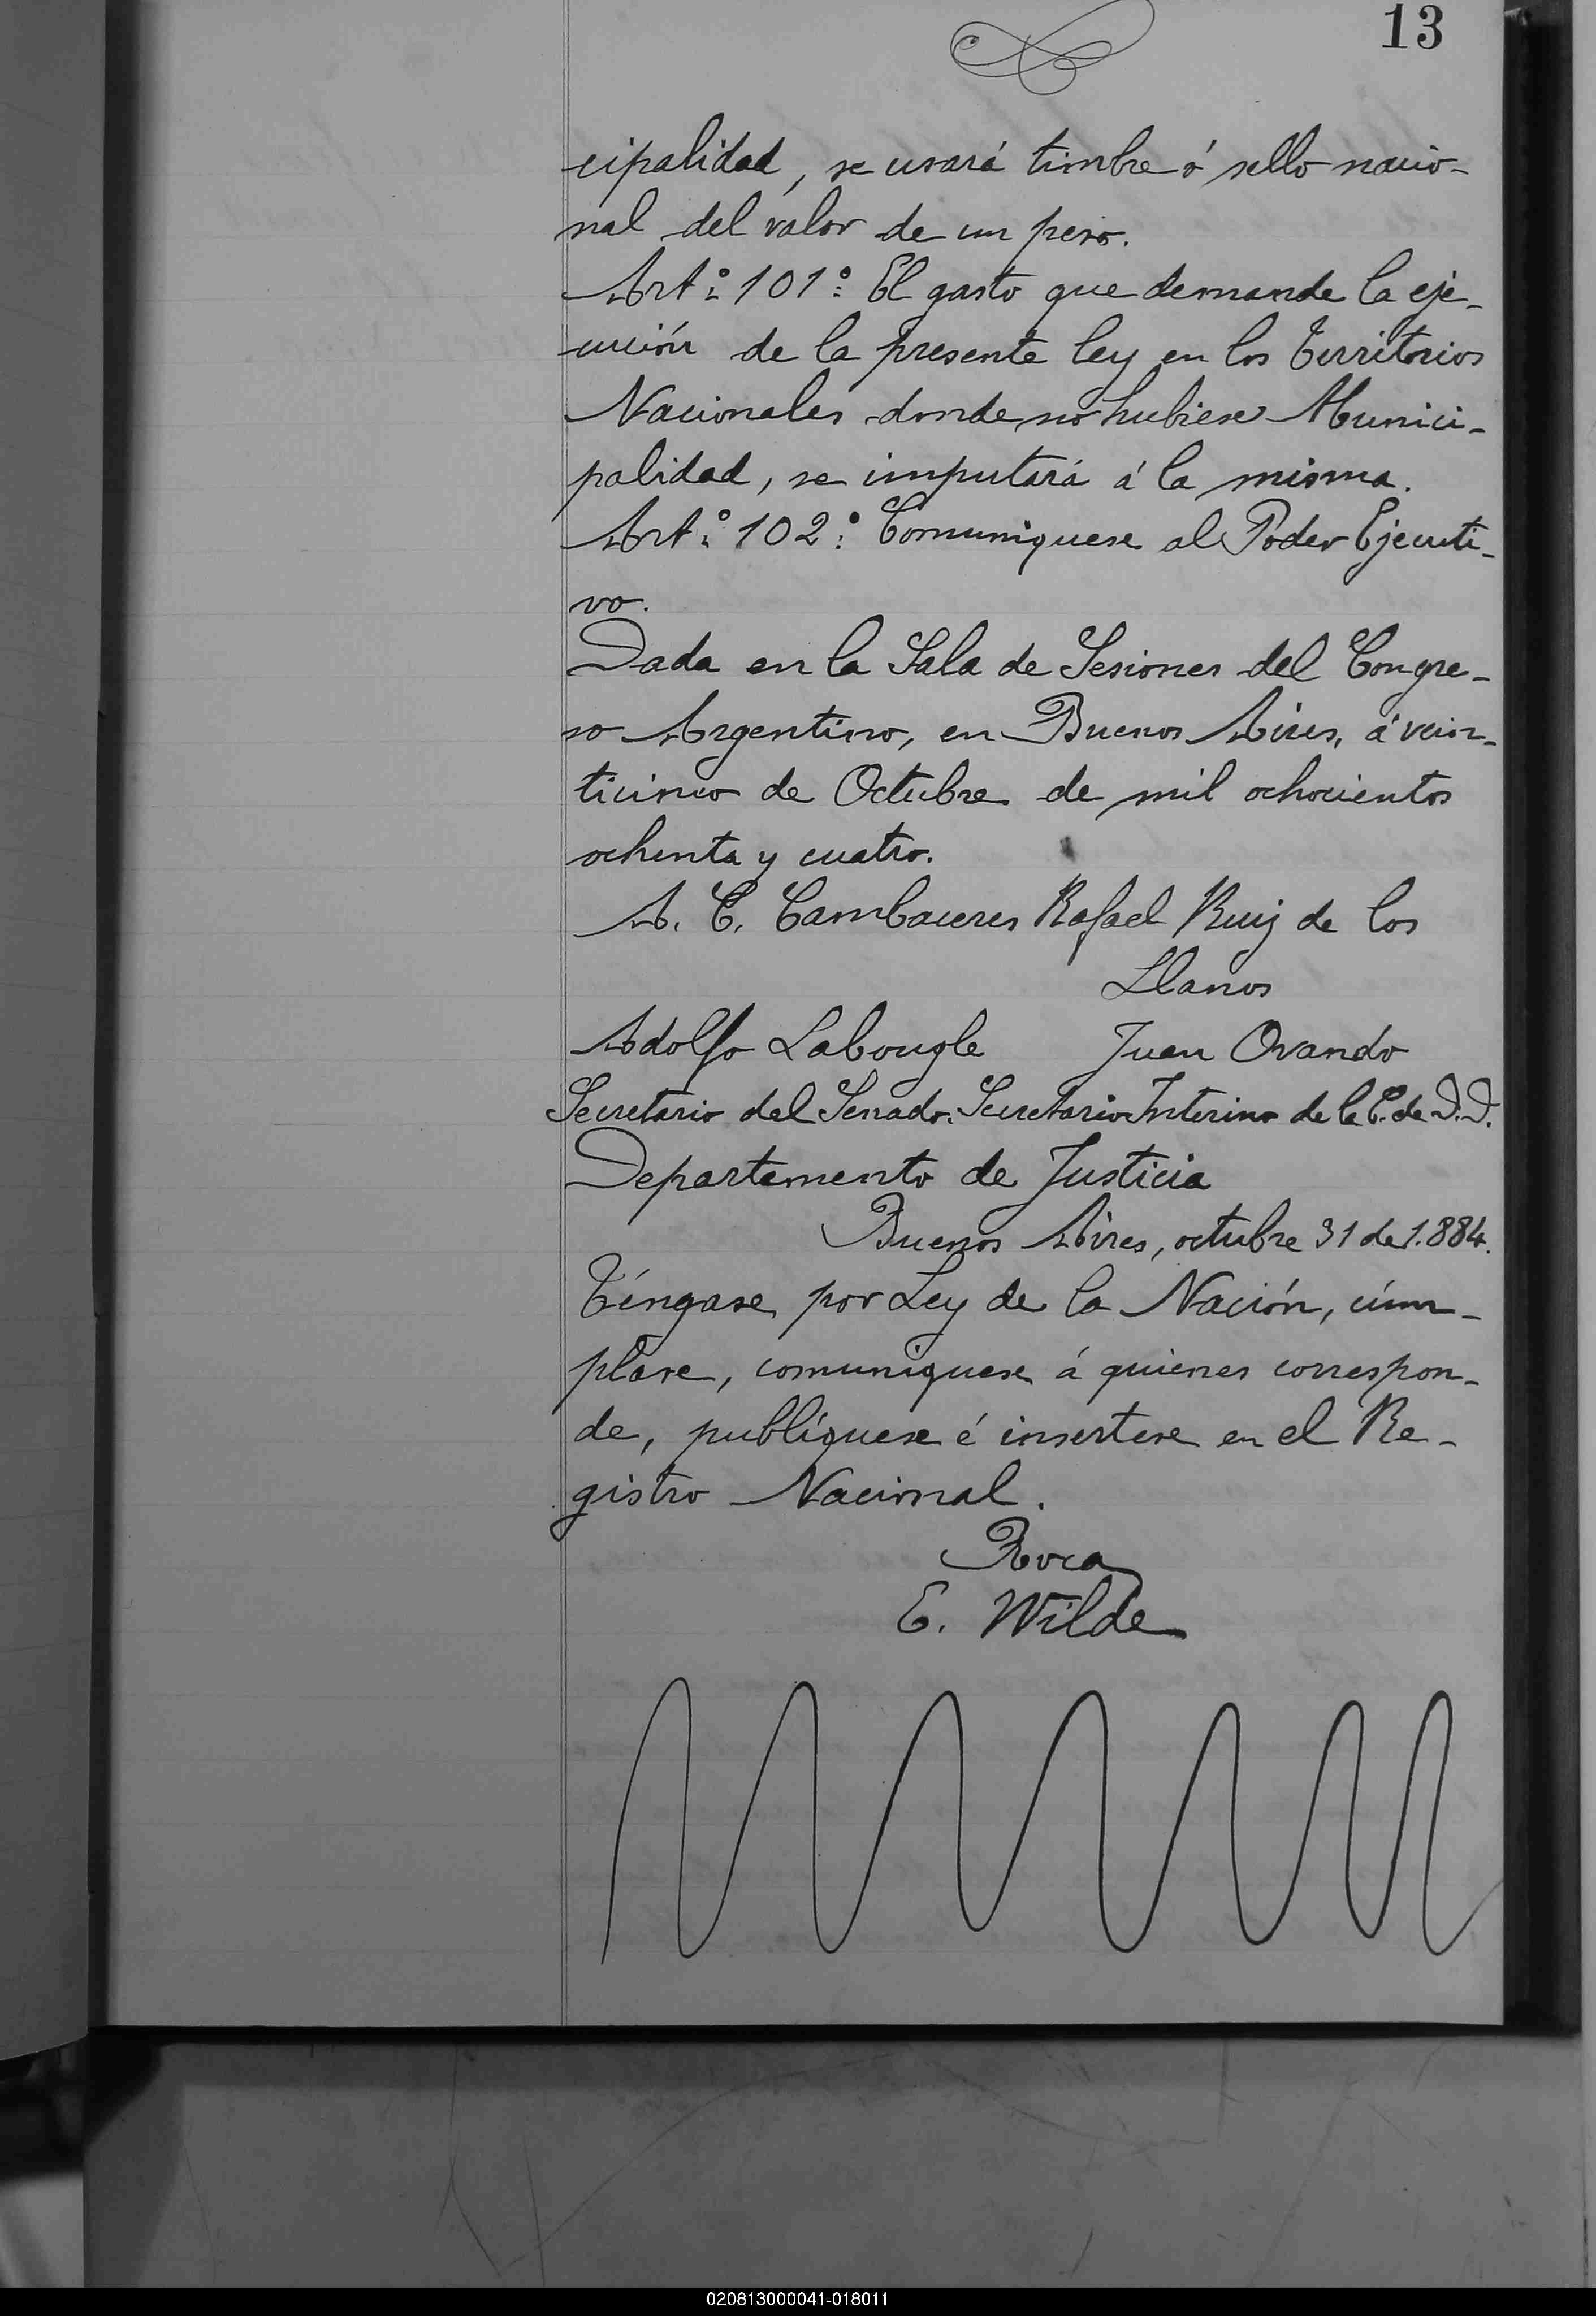 13
cipalidad, se usará timbre ó sello nacio-
nal del valor de un peso.
Art.º 101º: El gasto que demande la eje-
cución de la presente ley en los Territorios
Nacionales donde no hubiese Munici-
palidad, se imputará á la misma.
Art.º 102º: Comuniquese al Poder Ejecuti-
vo.
Dada en la Sala de Sesiones del Congre-
so Argentino, en Buenos Aires, á vein-
ticinco de Octubre de mil ochocientos
ochenta y cuatro.
A. C. Cambaceres Rafael Ruiz de los
Llanos
Adolfo Labougle Juan Ovando
Secretario del Senado. Secretario Interino de la C. de D.D.
Departamento de Justicia
Buenos Aires, octubre 31 de 1.884.
Téngase por Ley de la Nación, cúm-
plase, comuniquese á quienes correspon-
de, publíquese é insertese en el Re-
gistro Nacional.
Roca
E. Wilde
020813000041-018011